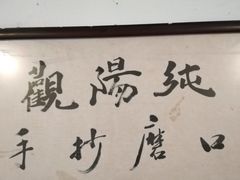 純陽觀
口磨抄手